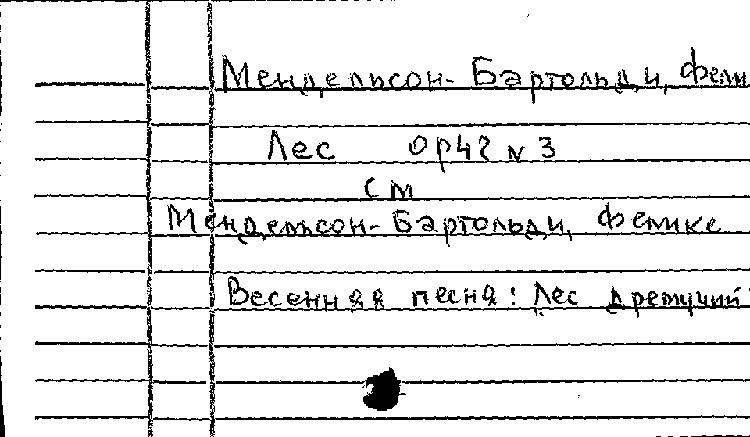 Мендельсон-Бартольди, Фели
Лес op42 N 3
см
Мендельсон-Бартольди, Феликс
Весенняя песня: Лес дремучий